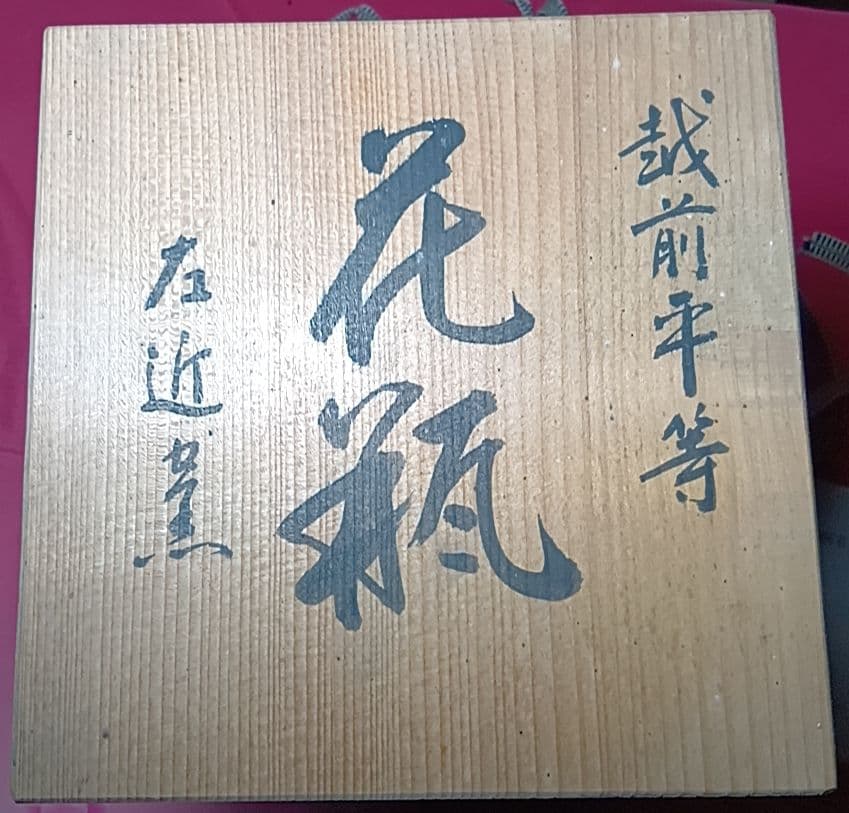 越前平等
花瓶
左近窯